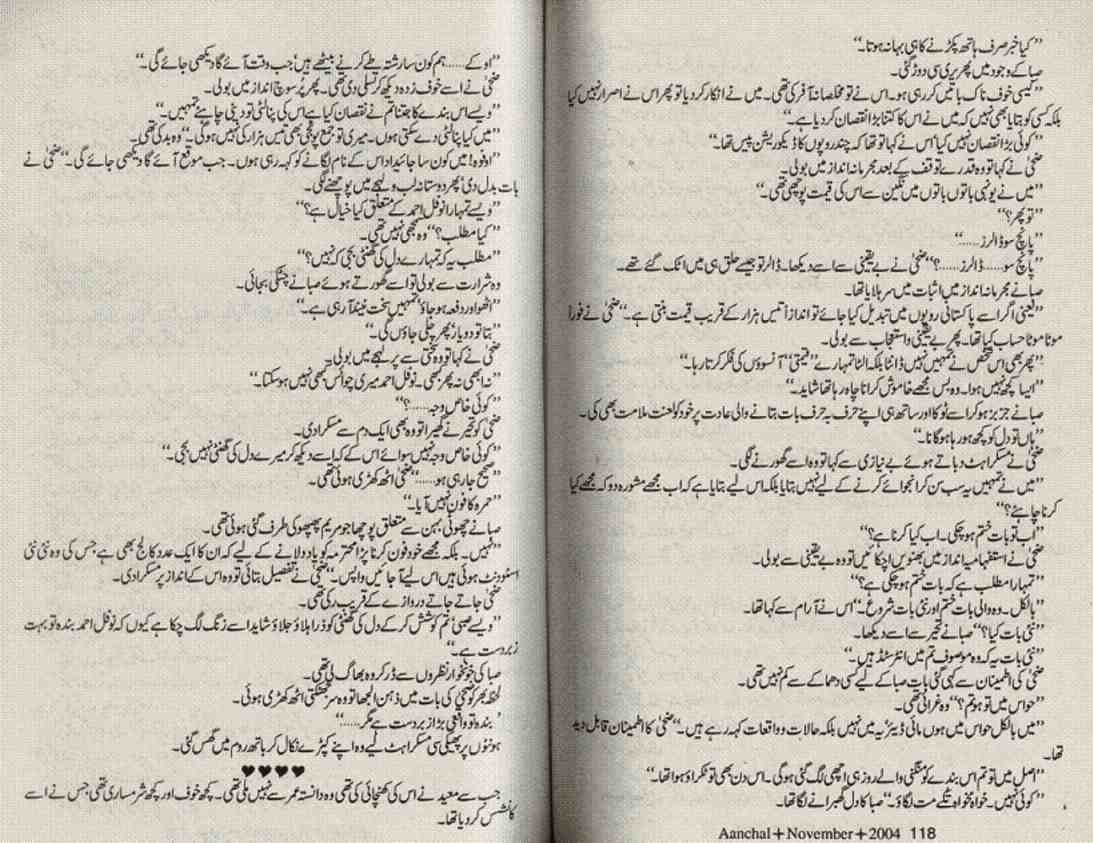 ”کیا خبر صرف ہاتھ پکڑنے کا ہی بہانہ ہوتا۔“
صبا کے وجود میں پھریری سی دوڑ گئی۔
”کیسی خوف ناک باتیں کر رہی ہو۔ اس نے تو مخلصانہ آفر کی تھی۔ میں نے انکار کر دیا تو پھر اس نے اصرار نہیں کیا
بلکہ کسی کو بتایا بھی نہیں کہ میں نے اس کا کتنا بڑا نقصان کر دیا ہے۔“
”کوئی بڑا نقصان نہیں کیا‘ اس نے کہا تو تھا کہ چند روپوں کا ڈیکوریشن پیس تھا۔“
ضحیٰ نے کہا تو وہ قدرے توقف کے بعد مجرمانہ انداز میں بولی۔
”میں نے یونہی باتوں باتوں میں نگین سے اس کی قیمت پوچھی تھی۔“
”تو پھر؟“
”پانچ سو ڈالرز......“
”پانچ سو...... ڈالرز......؟“ ضحیٰ نے بے یقینی سے اسے دیکھا۔ ڈالر تو جیسے حلق ہی میں اٹک گئے تھے۔
صبا نے مجرمانہ انداز میں اثبات میں سر ہلایا تھا۔
”یعنی اگر اسے پاکستانی روپوں میں تبدیل کیا جائے تو اندازاً تیس ہزار کے قریب قیمت بنتی ہے۔“ ضحیٰ نے فوراً
موٹا موٹا حساب کیا تھا۔ پھر بے یقینی و استعجاب سے بولی۔
”پھر بھی اس شخص نے تمہیں نہیں ڈانٹا بلکہ الٹا تمہارے ”قیمتی“ آنسوؤں کی فکر کرتا رہا۔“
”ایسا کچھ نہیں ہوا۔ وہ بس مجھے خاموش کرانا چاہ رہا تھا شاید۔“
صبا نے جزبز ہو کر اسے ٹوکا اور ساتھ ہی اپنے حرف بہ حرف بات بتانے والی عادت پر خود کو لعنت ملامت بھی کی۔
”ہاں تو دل کو کچھ ہو رہا ہو گا نا۔“
ضحیٰ نے مسکراہٹ دباتے ہوئے بے نیازی سے کہا تو وہ اسے گھورنے لگی۔
”میں نے تمہیں یہ سب سن کر انجوائے کرنے کے لیے نہیں بتایا بلکہ اس لیے بتایا ہے کہ اب مجھے مشورہ دو کہ مجھے کیا
کرنا چاہئے؟“
”اب تو بات ختم ہو چکی۔ اب کیا کرنا ہے؟“
ضحیٰ نے استفہامیہ انداز میں بھنویں اچکائیں تو وہ بے یقینی سے بولی۔
”تمہارا مطلب ہے کہ بات ختم ہو چکی ہے؟“
”بالکل۔ وہ والی بات ختم اور نئی بات شروع۔“ اس نے آرام سے کہا تھا۔
”نئی بات کیا؟“ صبا نے تحیر سے اسے دیکھا۔
”نئی بات یہ کہ وہ موصوف تم میں انٹرسٹڈ ہیں۔“
ضحیٰ کی اطمینان سے کہی گئی بات صبا کے لیے کسی دھماکے سے کم نہیں تھی۔
”حواس میں تو ہو تم؟“ وہ غرائی تھی۔
”میں بالکل حواس میں ہوں مائی ڈیئر‘ یہ میں نہیں بلکہ حالات و واقعات کہہ رہے ہیں۔“ ضحیٰ کا اطمینان قابل دید
تھا۔
”اصل میں تو تم اس بندے کو منگنی والے روز ہی اچھی لگ گئی ہو گی۔ اس دن بھی تو ٹکراؤ ہوا تھا۔“
”کوئی نہیں۔ خواہ مخواہ تکے مت لگاؤ۔“ صبا کا دل گھبرانے لگا تھا۔
Aanchal+November+2004 118
”او کے...... ہم کون سا رشتہ طے کرنے بیٹھے ہیں‘ جب وقت آئے گا دیکھی جائے گی۔“
ضحیٰ نے اسے خوف زدہ دیکھ کر تسلی دی تھی۔ پھر پُر سوچ انداز میں بولی۔
”ویسے اس بندے کا جتنا تم نے نقصان کیا ہے اس کی پینالٹی تو دینی چاہئے تمہیں۔“
”میں کیا پینالٹی دے سکتی ہوں۔ میری تو جمع پونجی بھی تیس ہزار کی نہیں ہو گی۔“ وہ بدکی تھی۔
”اوفوہ! میں کون سا جائیداد اس کے نام لگانے کو کہہ رہی ہوں۔ جب موقع آئے گا دیکھی جائے گی۔“ ضحیٰ نے
بات بدل دی‘ پھر دوستانہ لب و لہجے میں پوچھنے لگی۔
”ویسے تمہارا نوفل احمد کے متعلق کیا خیال ہے؟“
”کیا مطلب؟“ وہ سمجھی نہیں تھی۔
”مطلب یہ کہ تمہارے دل کی گھنٹی بجی کہ نہیں؟“
وہ شرارت سے بولی تو اسے گھورتے ہوئے صبا نے چٹکی بجائی۔
”اٹھو اور دفعہ ہو جاؤ‘ تمہیں سخت نیند آ رہی ہے۔“
”بتا تو دو یار‘ پھر چلی جاؤں گی۔“
ضحیٰ نے کہا تو وہ سختی سے پر لہجے میں بولی۔
”نہ ابھی نہ پھر بھی۔ نوفل احمد میری چوائس بھی نہیں ہو سکتا۔“
”کوئی خاص وجہ......؟“
ضحیٰ کو تحیر نے گھیرا تو وہ بھی ایک دم سے مسکرا دی۔
”کوئی خاص وجہ نہیں سوائے اس کے کہ اسے دیکھ کر میرے دل کی گھنٹی نہیں بجی۔“
”صحیح جا رہی ہو......“ ضحیٰ اٹھ کھڑی ہوئی تھی۔
”حمرہ کا فون نہیں آیا۔“
صبا نے چھوٹی بہن سے متعلق پوچھا جو مریم پھپھو کی طرف گئی ہوئی تھی۔
”نہیں۔ بلکہ مجھے خود فون کرنا پڑا محترمہ کو یاد دلانے کے لیے کہ ان کا ایک عدد کالج بھی ہے جس کی وہ نئی نئی
اسٹوڈنٹ ہوئی ہیں اس لیے آ جائیں واپس۔“ ضحیٰ نے تفصیل بتائی تو وہ اس کے انداز پر مسکرا دی۔
ضحیٰ جاتے جاتے دروازے کے قریب رکی تھی۔
”ویسے صبی‘ تم کوشش کر کے دل کی گھنٹی کو ذرا ہلاؤ جلاؤ شاید اسے زنگ لگ چکا ہے کیوں کہ نوفل احمد بندہ تو بہت
زبردست ہے۔“
صبا کی خونخوار نظروں سے ڈر کر وہ بھاگ لی تھی۔
لحظہ بھر کو ضحیٰ کی بات میں ذہن الجھا تو وہ سر جھٹکتی اٹھ کھڑی ہوئی۔
’بندہ تو واقعی بڑا زبردست ہے مگر......‘
ہونٹوں پر پھیکی سی مسکراہٹ لیے وہ اپنے کپڑے نکال کر باتھ روم میں گھس گئی۔
♥♥♥♥
جب سے معید نے اس کی کھنچائی کی تھی وہ دانستہ عمر سے نہیں ملی تھی۔ کچھ خوف اور کچھ شرمساری تھی جس نے اسے
کانشس کر دیا تھا۔